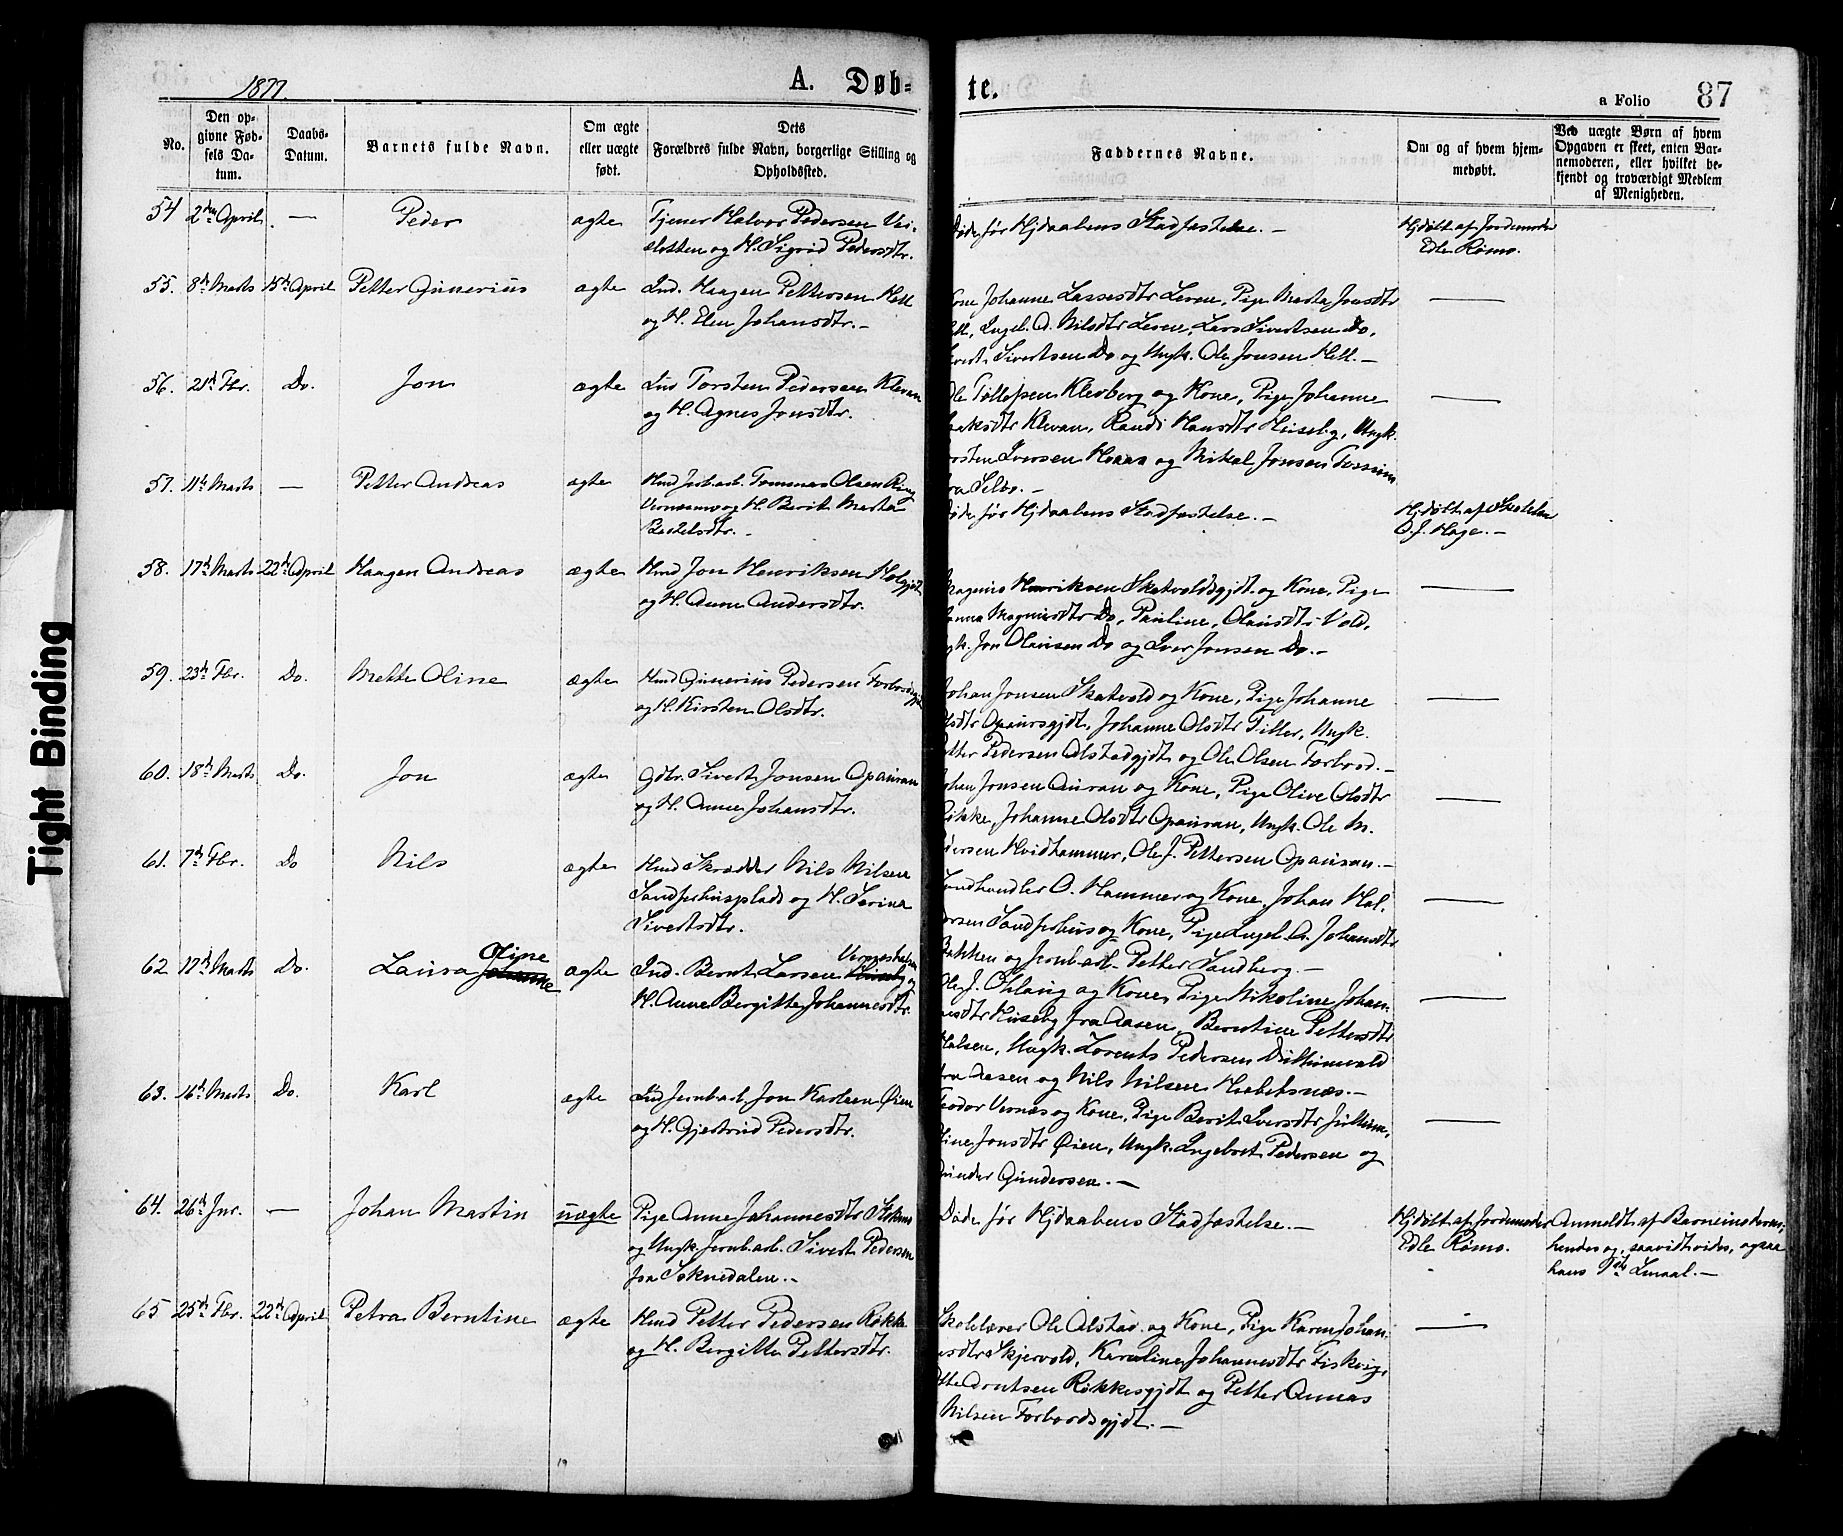 1877.
A. Døb-
te.
a Folio 87
No.
Den op-
givne Fød-
sels Da-
tum.
Daabs-
Datum.
Barnets fulde Navn.
Om ægte
eller uægte
født.
Dets
Forældres fulde Navn, borgerlige Stilling og
Opholdssted.
Faddernes Navne.
Om og af hvem hjem-
medøbt.
Ved uægte Børn af hvem
Opgaven er skeet, enten Bar-
nemoderen, eller hvilket be-
kjendt og troværdigt Medlem
af Menigheden.
54 2den April. — Peder ægte Tjener Halvor Pedersen
og H. Sigrid Pedersdtr.
Døde før Hjdaabens Stadfæstelse. —
Hjdøbt af Jordemoder
Edle Rømo.
55. 8de Marts 15de April Petter Gunerius ægte Ind. Haagen Pettersen Hell
og H. Elen Johansdtr. —
Kone Johanne Lassesdtr Leren, Pige Marta Jonsdtr
Hell, Ingeb. A. Nilsdtr Leren, Lars Sivertsen Do,
Sivert Sivertsen Do og Ungk. Ole Jonsen Hell. —
56. 21de Fbr. Do. Jon ægte Ind Torsten Pedersen Klevan
og H. Agnes Jonsdtr.
Ole Tøllefsen Klevberg og Kone, Pige Johanne
Klevan, Randi Hansdtr Huseby, Ungk.
Torsten Iversen Haave og Mikal Jonsen
fra Selbo. —
57. 11te Marts — Petter Andreas ægte Hmd Jernb.arb. Tommas Olsen
og H. Berit Marta
Døde før Hjdaabens Stadfæstelse. —
Hjdøbt af Skolelær
O. J. Hage. —
58. 17de Marts 22de April Haagen Andreas ægte Hmd Jon Henriksen
og H. Anne Andersdtr.
Magnus Henriksen Skatvoldsgjdt og Kone, Pige
Anna Magnusdtr Do, Pauline Olausdtr Vold,
Ungk. Jon Olausen Do og Iver Jonsen Do. —
59. 23de Fbr. Do. Mette Oline ægte Hmd Gunerius Pedersen
og H. Kirsten Olsdtr.
Johan Jonsen Skatvold og Kone, Pige Johanne
Olsdtr Opausgjdt, Johanne Olsdtr Fitter, Ungk.
Petter Pedersen Alstadgjdt og Ole Olsen Forbord. —
60. 18de Marts Do. Jon ægte Gdbr. Sivert Jonsen Opauran
og H. Anne Johansdtr.
Johan Jonsen Auran og Kone, Pige Olive Olsdtr
Røkke, Johanne Olsdtr Opauran, Ungk. Ole M.
Pedersen Hvidhammer, Ole J. Pettersen Opauran. —
61. 7de Fbr. Do Nils ægte Hmd Skrædder Nils Nilsen
Sandferhusplads og H. Serina
Sivertsdtr.
Landhandler O. Hammer og Kone, Johan Hal-
vorsen Sandferhus og Kone, Pige Ingeb. A. Johansdtr
Bakken og Jernb.arb. Petter Sandberg. —
62 17de Marts Do. Laura Oline ægte Ind. Bernt Larsen og
H. Anne Bergitte Johannesdtr.
Ole J. Øhlang og Kone, Pige Nikoline Johan-
nesdtr Huseby fra Aasen, Berntine Pettersdtr
Halsen, Ungk. Lorents Pedersen
fra Aasen og Nils Nilsen —
63. 16de Marts Do. Karl ægte Ind Jernb.arb. Jon Karlsen Øien
og H. Gjertrud Pedersdtr.
Teodor Vernæs og Kone, Pige Berit Iversdtr
Jonsdtr Øien, Ungk. Ingebret Pedersen og
Gunder Gundersen. —
64. 26de Jnr. — Johan Martin uægte Pige Anne Johannesdtr
og Ungk. Jernb.arb. Sivert Pedersen
fra Soknedalen. —
Døde før Hjdaabens Stadfæstelse. —
Hjdøbt af Jordemoder
Edle Rømo.
Anmeldt af Barnemoderen;
hendes og, saavidt vides, ogsaa
hans 1ste Leiermaal. —
65 25de Fbr. 22de April Petra Berntine ægte Hmd Petter Pedersen Røkke
og H. Bergitte Pettersdtr.
Skolelærer Ole Alstad og Kone, Pige Karen Johan-
nesdtr Skjervold, Karoline Johannesdtr Fiskvig,
Arntsen Røkkesgjdt og Petter Annas
Nilsen Forbordsgjdt. —
Tight Binding